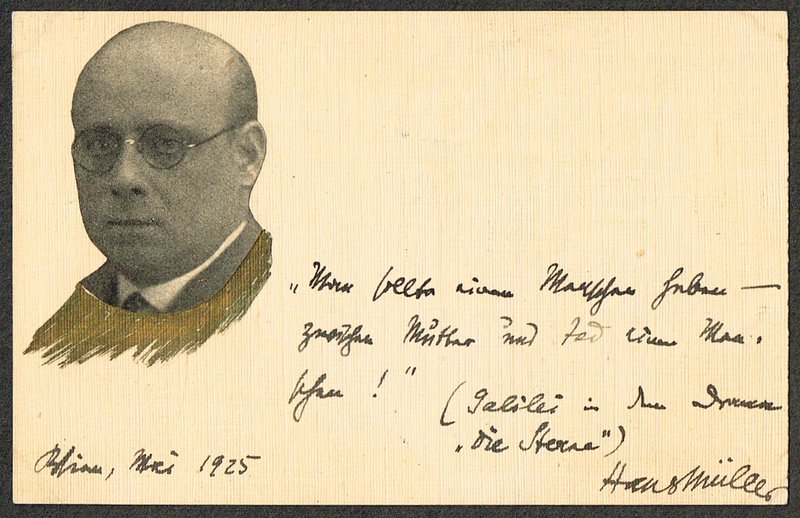 „Man sollte einen Menschen haben —
zwischen Mutter und Tod einen Men-
schen!"
(Galilei in dem Drama
„Die Sterne")
Hans Müller
Wien, Mai 1925